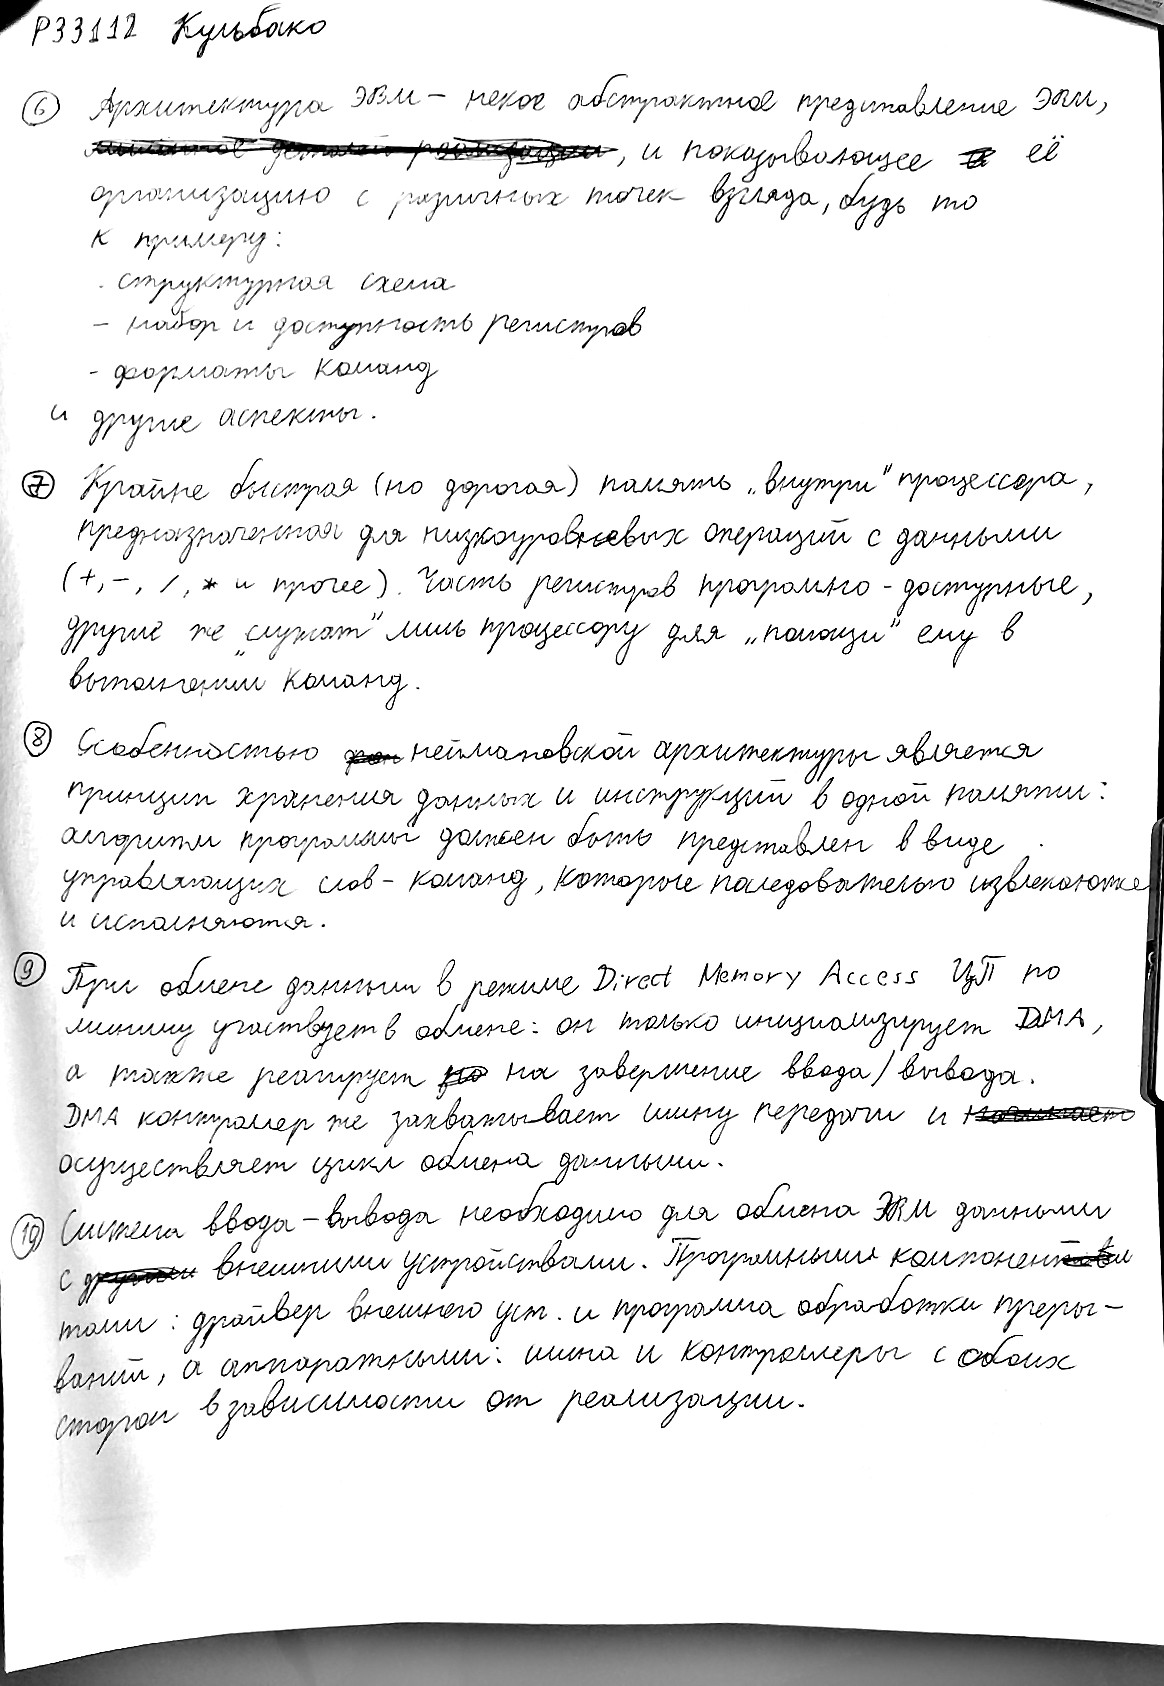 P33112 Кульбако
⑥ Архитектура ЭВМ – некое абстрактное представление ЭВМ,
, и показывающее её
организацию с различных точек взгляда, будь то
к примеру:
- структурная схема
- набор и доступность регистров
- форматы команд
и другие аспекты.
⑦ Крайне быстрая (но дорогая) память „внутри" процессора,
предназначенная для низкоуровневых операций с данными
(+, -, /, * и прочее). Часть регистров програмно-доступные,
другие же „служат" лишь процессору для „помощи" ему в
выполнении команд.
⑧ Особенностью неймановской архитектуры является
принцип хранения данных и инструкций в одной памяти:
алгоритм программы должен быть представлен в виде
управляющих слов-команд, которые последовательно извлекаются
и исполняются.
⑨ При обмене данными в режиме Direct Memory Access ЦП по
минимуму участвует в обмене: он только инициализирует DMA,
а также реагирует на завершение ввода/вывода.
DMA контроллер же захватывает шину передачи и
осуществляет цикл обмена данными.
⑩ Система ввода-вывода необходимо для обмена ЭВМ данными
с внешними устройствами. Програмными компонен
тами: драйвер внешнего уст. и программа обработки преры-
ваний, а аппаратными: шина и контроллеры с обоих
сторон в зависимости от реализации.